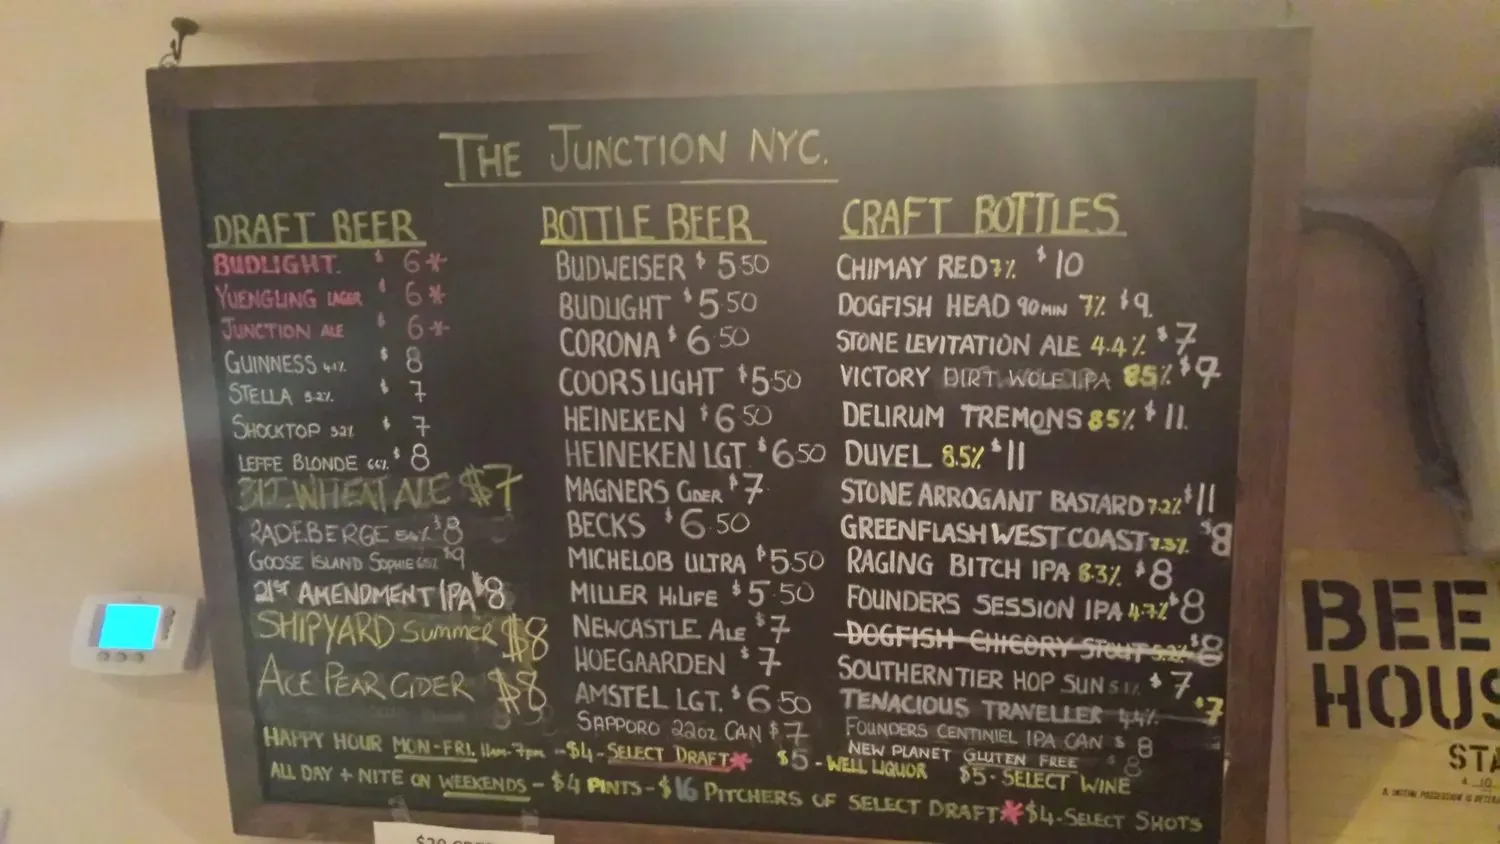 THE JUNCTION NYC.
DRAFT BEER
BUDLIGHT. $ 6*
YUENGLING LAGER $ 6*
JUNCTION ALE $ 6*
GUINNESS 4.1% $ 8
STELLA 5.2% $ 7
SHOCKTOP 5.2% $ 7
LEFFE BLONDE 6.6% $ 8
312 WHEAT ALE $7
RADEBERGE $8
GOOSE ISLAND SOPHIE 6.5% $9
21st AMENDMENT IPA $8
SHIPYARD Summer $8
ACE PEAR CIDER $8
BOTTLE BEER
BUDWEISER $ 5.50
BUDLIGHT $5.50
CORONA $ 6.50
COORS LIGHT $5.50
HEINEKEN $6.50
HEINEKEN LGT. $6.50
MAGNERS CIDER $7
BECKS $6.50
MICHELOB ULTRA $5.50
MILLER HiLIFE $5.50
NEWCASTLE ALE $7
HOEGAARDEN $7
AMSTEL LGT. $6.50
SAPPORO 22oz CAN $7
CRAFT BOTTLES
CHIMAY RED 7% $10
DOGFISH HEAD 90 MIN 7% $9.
STONE LEVITATION ALE 4.4% $7
VICTORY DIRT WOLF IPA 85% $9
DELIRUM TREMONS 85% $11.
DUVEL 8.5% $11
STONE ARROGANT BASTARD 7.2% $11
GREENFLASH WEST COAST 7.3% $8
RAGING BITCH IPA 8.3% $8
FOUNDERS SESSION IPA 4.7% $8
DOGFISH CHICORY STOUT 5.2% $8
SOUTHERN TIER HOP SUN 5.1% $7
TENACIOUS TRAVELLER 4.4% $7
FOUNDERS CENTINIEL IPA CAN $8
NEW PLANET GLUTEN FREE $8
HAPPY HOUR MON-FRI. 11am-7pm - $4 - SELECT DRAFT* $5 - WELL LIQUOR $5 - SELECT WINE
ALL DAY + NITE ON WEEKENDS - $4 PINTS - $16 PITCHERS OF SELECT DRAFT* $4 - SELECT SHOTS
BEE
HOUS
STA